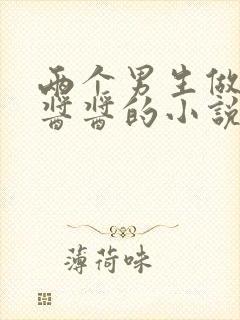 两个男生做
酱酱的小说
薄荷味